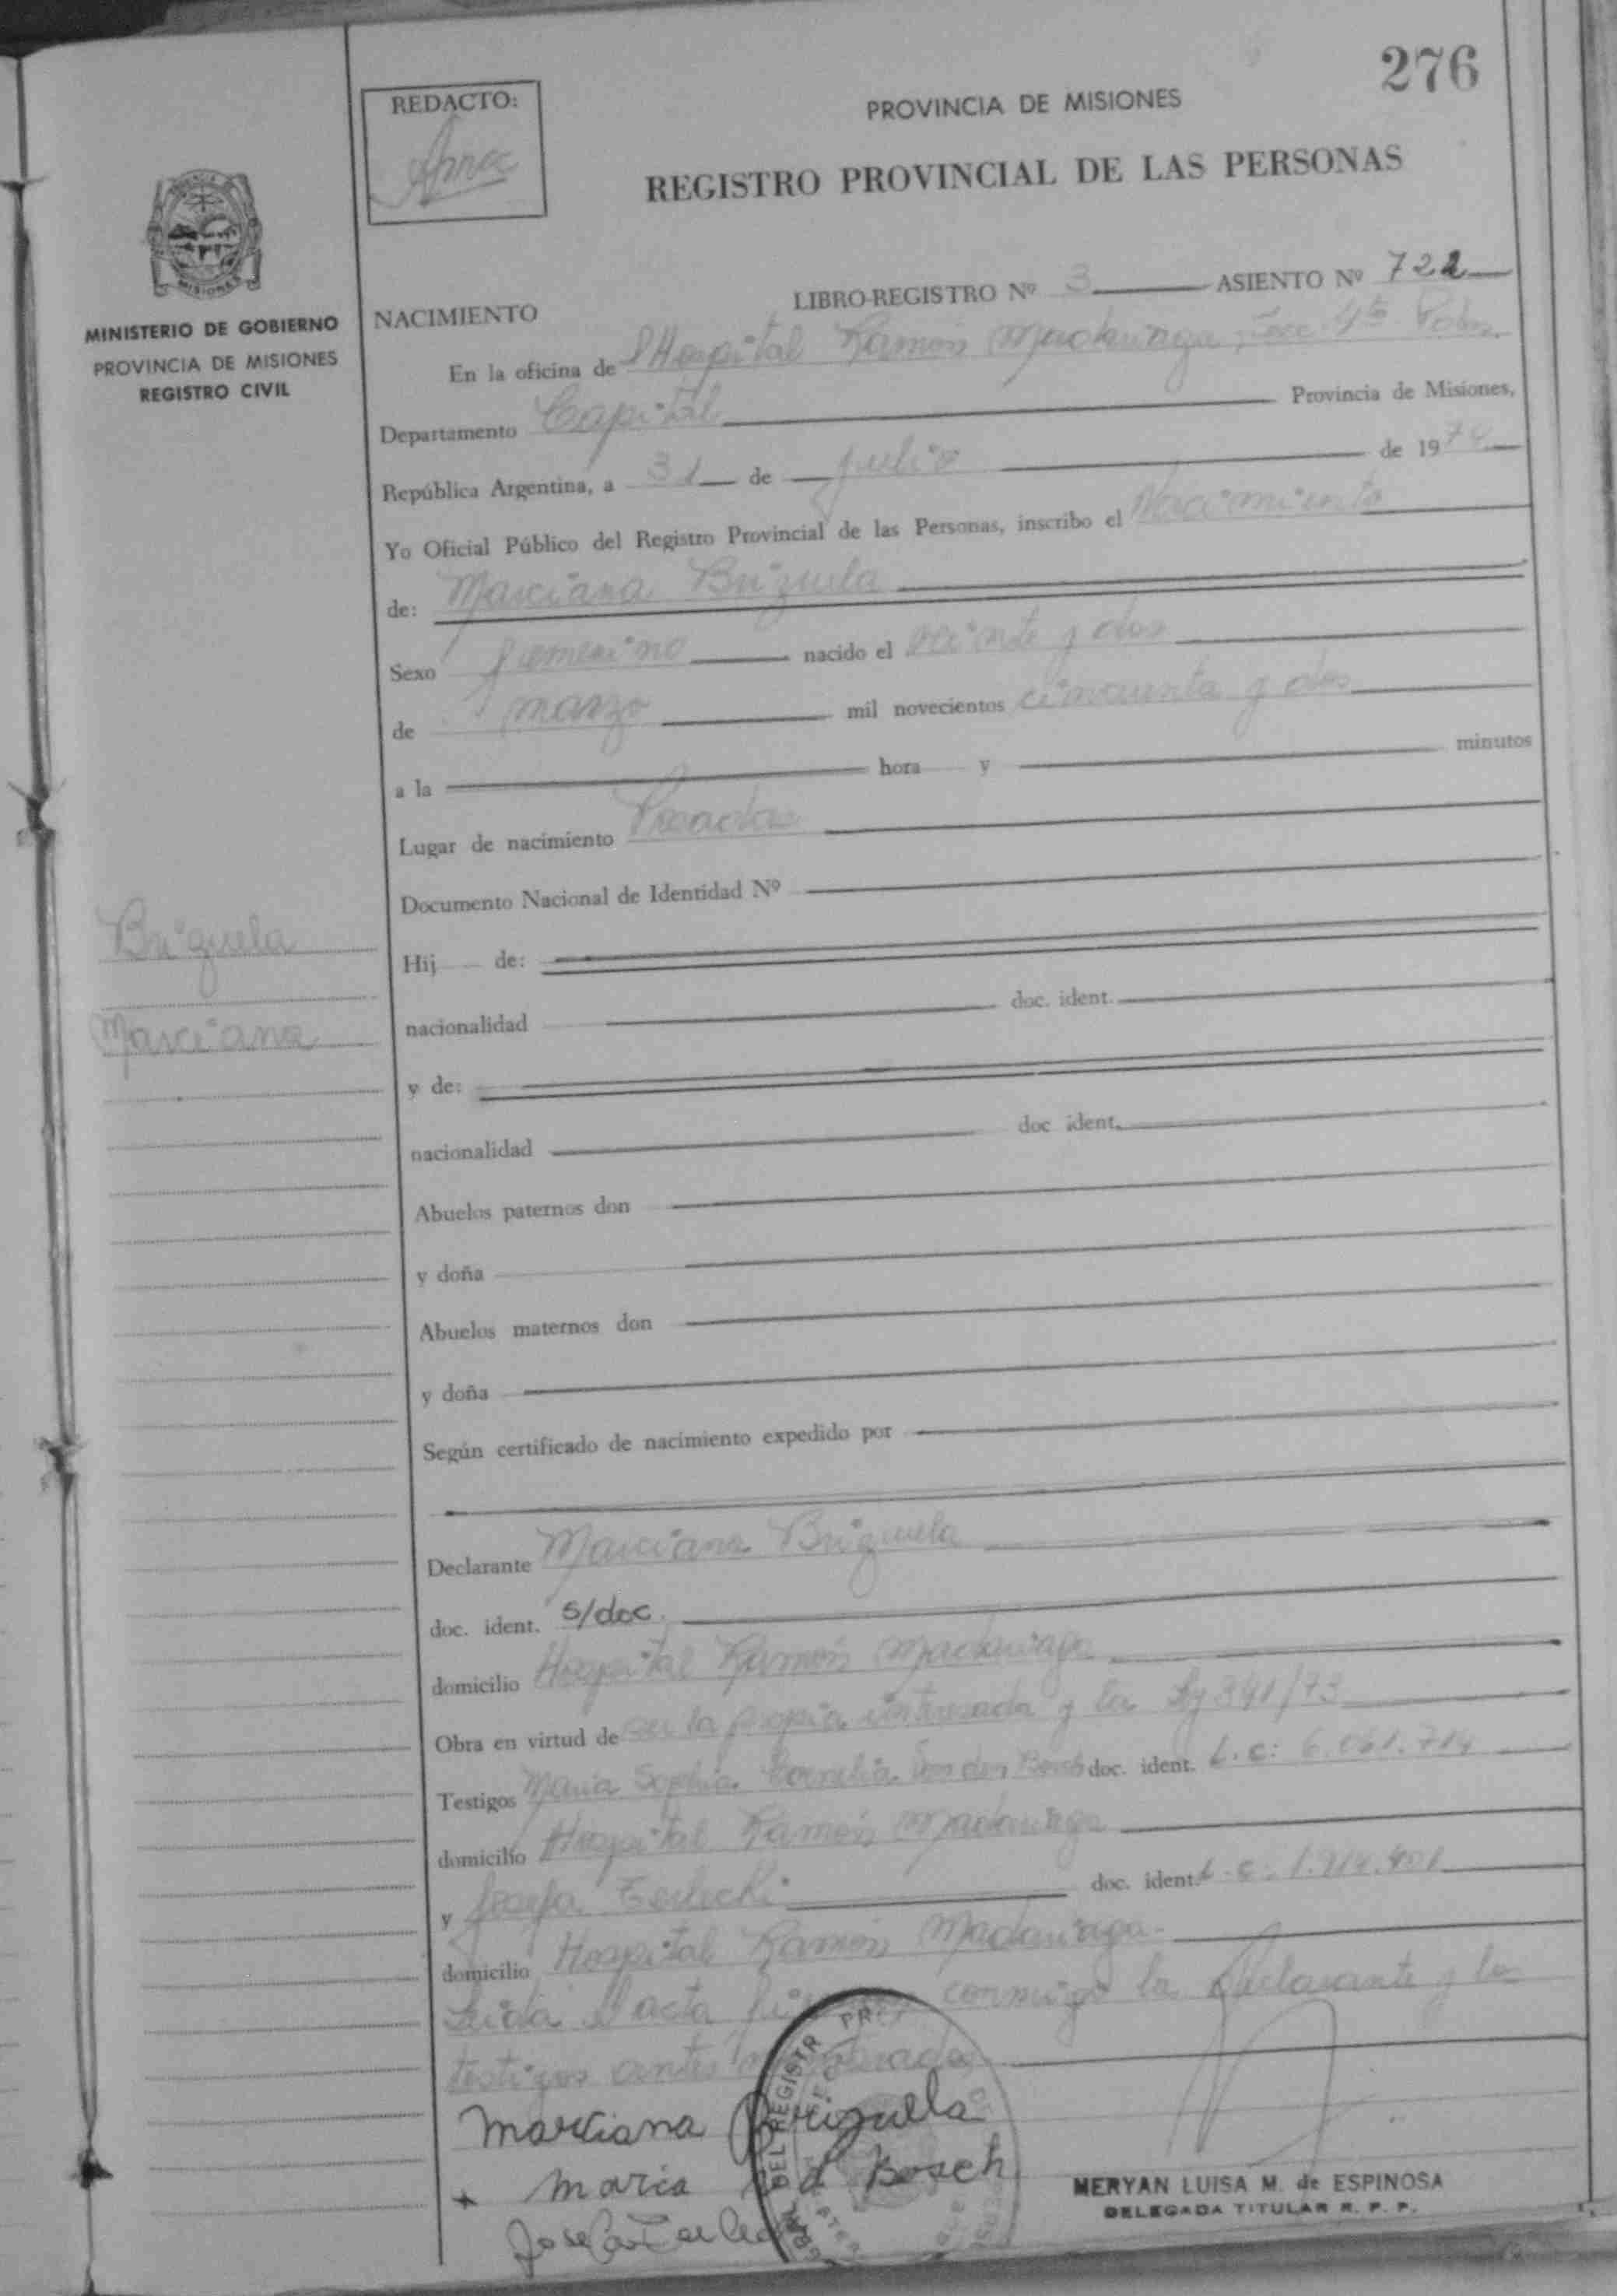 276
REDACTO:
PROVINCIA DE MISIONES
REGISTRO PROVINCIAL DE LAS PERSONAS
MISIONES
MINISTERIO DE GOBIERNO
PROVINCIA DE MISIONES
REGISTRO CIVIL
LIBRO-REGISTRO Nº 3 ASIENTO Nº 722
NACIMIENTO
En la oficina de Hospital Ramón Madariaga
Departamento Capital Provincia de Misiones,
República Argentina, a 31 de Julio de 197
Yo Oficial Público del Registro Provincial de las Personas, inscribo el Nacimiento
de: Marciana Brizuela
Sexo femenino nacido el veinte y dos
de marzo mil novecientos cincuenta y dos
a la hora y minutos
Lugar de nacimiento Posadas
Documento Nacional de Identidad Nº
Brizuela
Marciana
Hij de:
nacionalidad doc. ident.
y de:
nacionalidad doc ident.
Abuelos paternos don
y doña
Abuelos maternos don
y doña
Según certificado de nacimiento expedido por
Declarante Marciana Brizuela
doc. ident. s/doc.
domicilio Hospital Ramón Madariaga
Obra en virtud de ser la propia interesada y la Ley 391/73
Testigos Maria Sophia Cornelia Van den Bosch doc. ident. L.C: 6.061.714
domicilio Hospital Ramón Madariaga
y Josefa doc. ident. L.C.
domicilio Hospital Ramón Madariaga.
Leida el acta conmigo la declarante y los
testigos antes
Marciana Brizuela
Maria v d Bosch
Josefa
DEL REGISTR PR
MERYAN LUISA M. de ESPINOSA
DELEGADA TITULAR R. P. P.